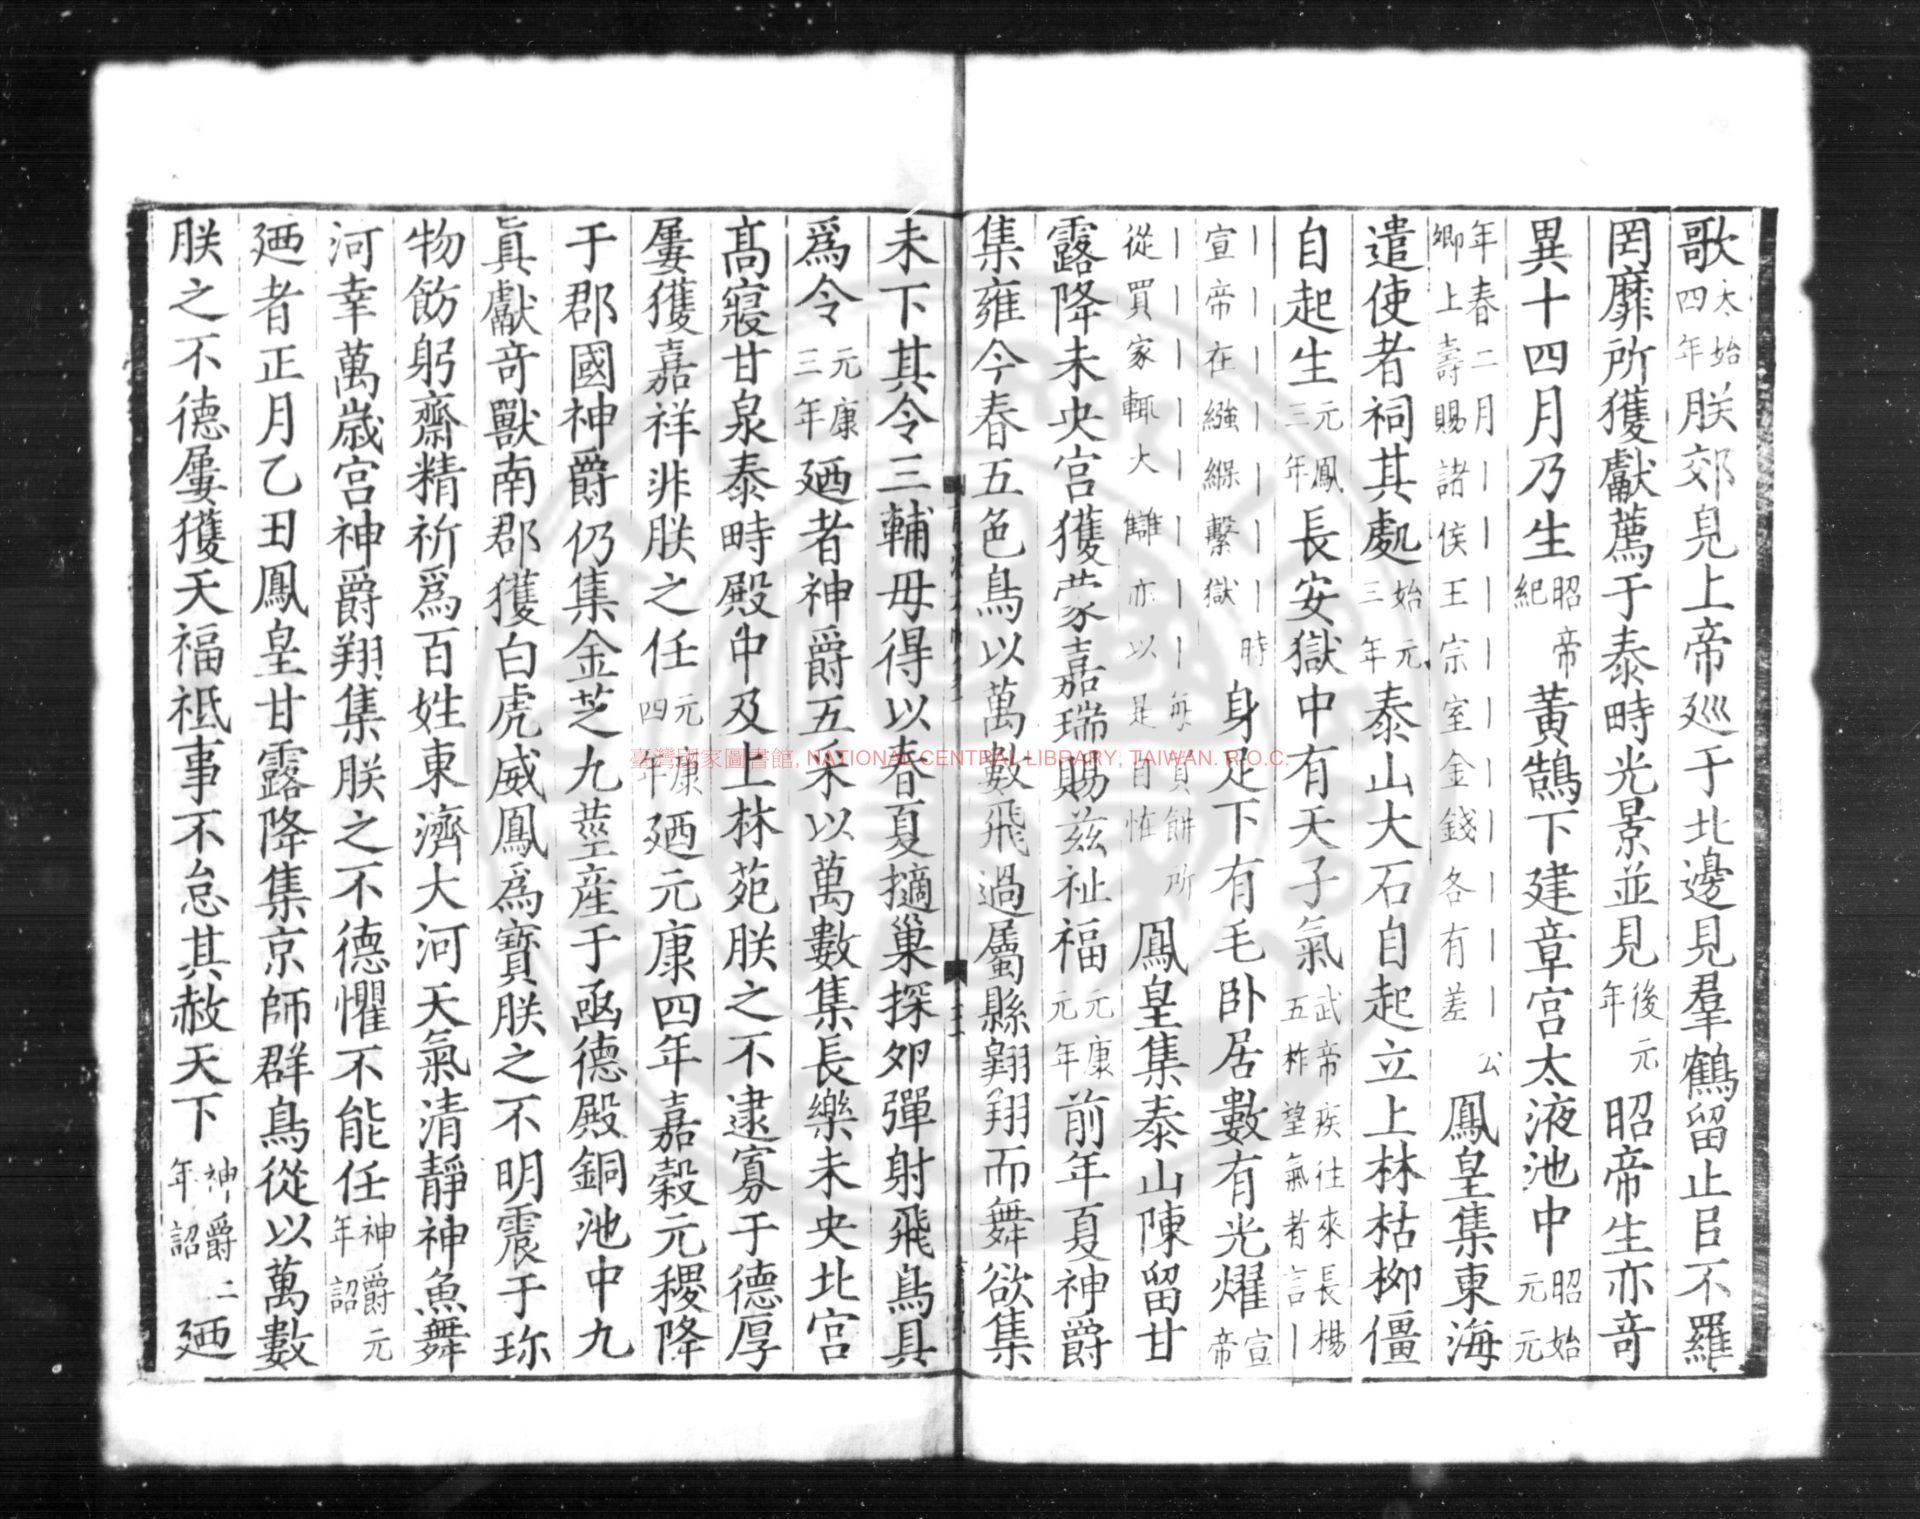 歌太始四年朕郊見上帝巡于北邊見羣鶴留止㠯不羅
罔靡所獲獻薦于泰畤光景並見後元年昭帝生亦奇
異十四月乃生昭帝紀黃鵠下建章宮太液池中昭始元元
年春二月丨丨丨丨丨丨丨公卿上壽賜諸侯王宗室金錢各有差鳳皇集東海
遣使者祠其處始元三年泰山大石自起立上林枯柳僵
自起生元鳳三年長安獄中有天子氣武帝疾往來長楊五柞望氣者言丨
丨丨丨丨丨丨時宣帝在繈緥繫獄身足下有毛卧居數有光燿宣帝
丨丨丨丨丨丨丨丨每買餅所從買家輒大讎亦以是自怪鳳皇集泰山陳留甘
露降未央宮獲蒙嘉瑞賜玆祉福元康元年前年夏神爵
集雍今春五色鳥以萬數飛過屬縣翺翔而舞欲集
未下其令三輔毋得以春夏擿巢探卵彈射飛鳥具
爲令元康三年廼者神爵五采以萬數集長樂未央北宮
髙寢甘泉泰畤殿中及上林苑朕之不逮寡于德厚
屢獲嘉祥非朕之任元康四年廼元康四年嘉穀元稷降
于郡國神爵仍集金芝九莖産于凾德殿銅池中九
眞獻奇獸南郡獲白虎威鳳爲寶朕之不明震于珎
物飭躬齋精祈爲百姓東濟大河天氣清靜神魚舞
河幸萬歳宮神爵翔集朕之不德懼不能任神爵元年詔
廼者正月乙丑鳳皇甘露降集京師群鳥從以萬數
朕之不德屢獲天福祗事不怠其赦天下神爵二年詔廼
臺灣國家圖書館, NATIONAL CENTRAL LIBRARY, TAIWAN. R.O.C.